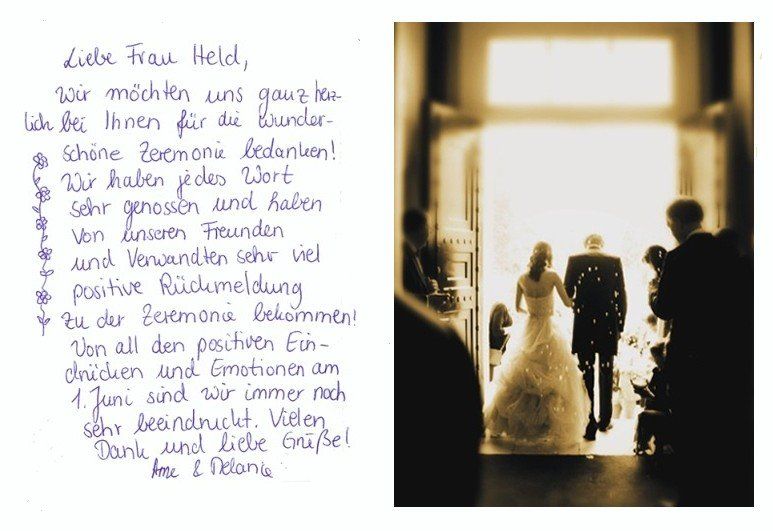 Liebe Frau Held,
Wir möchten uns ganz herz-
lich bei Ihnen für die wunder-
schöne Zeremonie bedanken!
Wir haben jedes Wort
sehr genossen und haben
von unseren Freunden
und Verwandten sehr viel
positive Rückmeldung
zu der Zeremonie bekommen!
Von all den positiven Ein-
drücken und Emotionen am
1. Juni sind wir immer noch
sehr beeindruckt. Vielen
Dank und liebe Grüße!
& Melanie